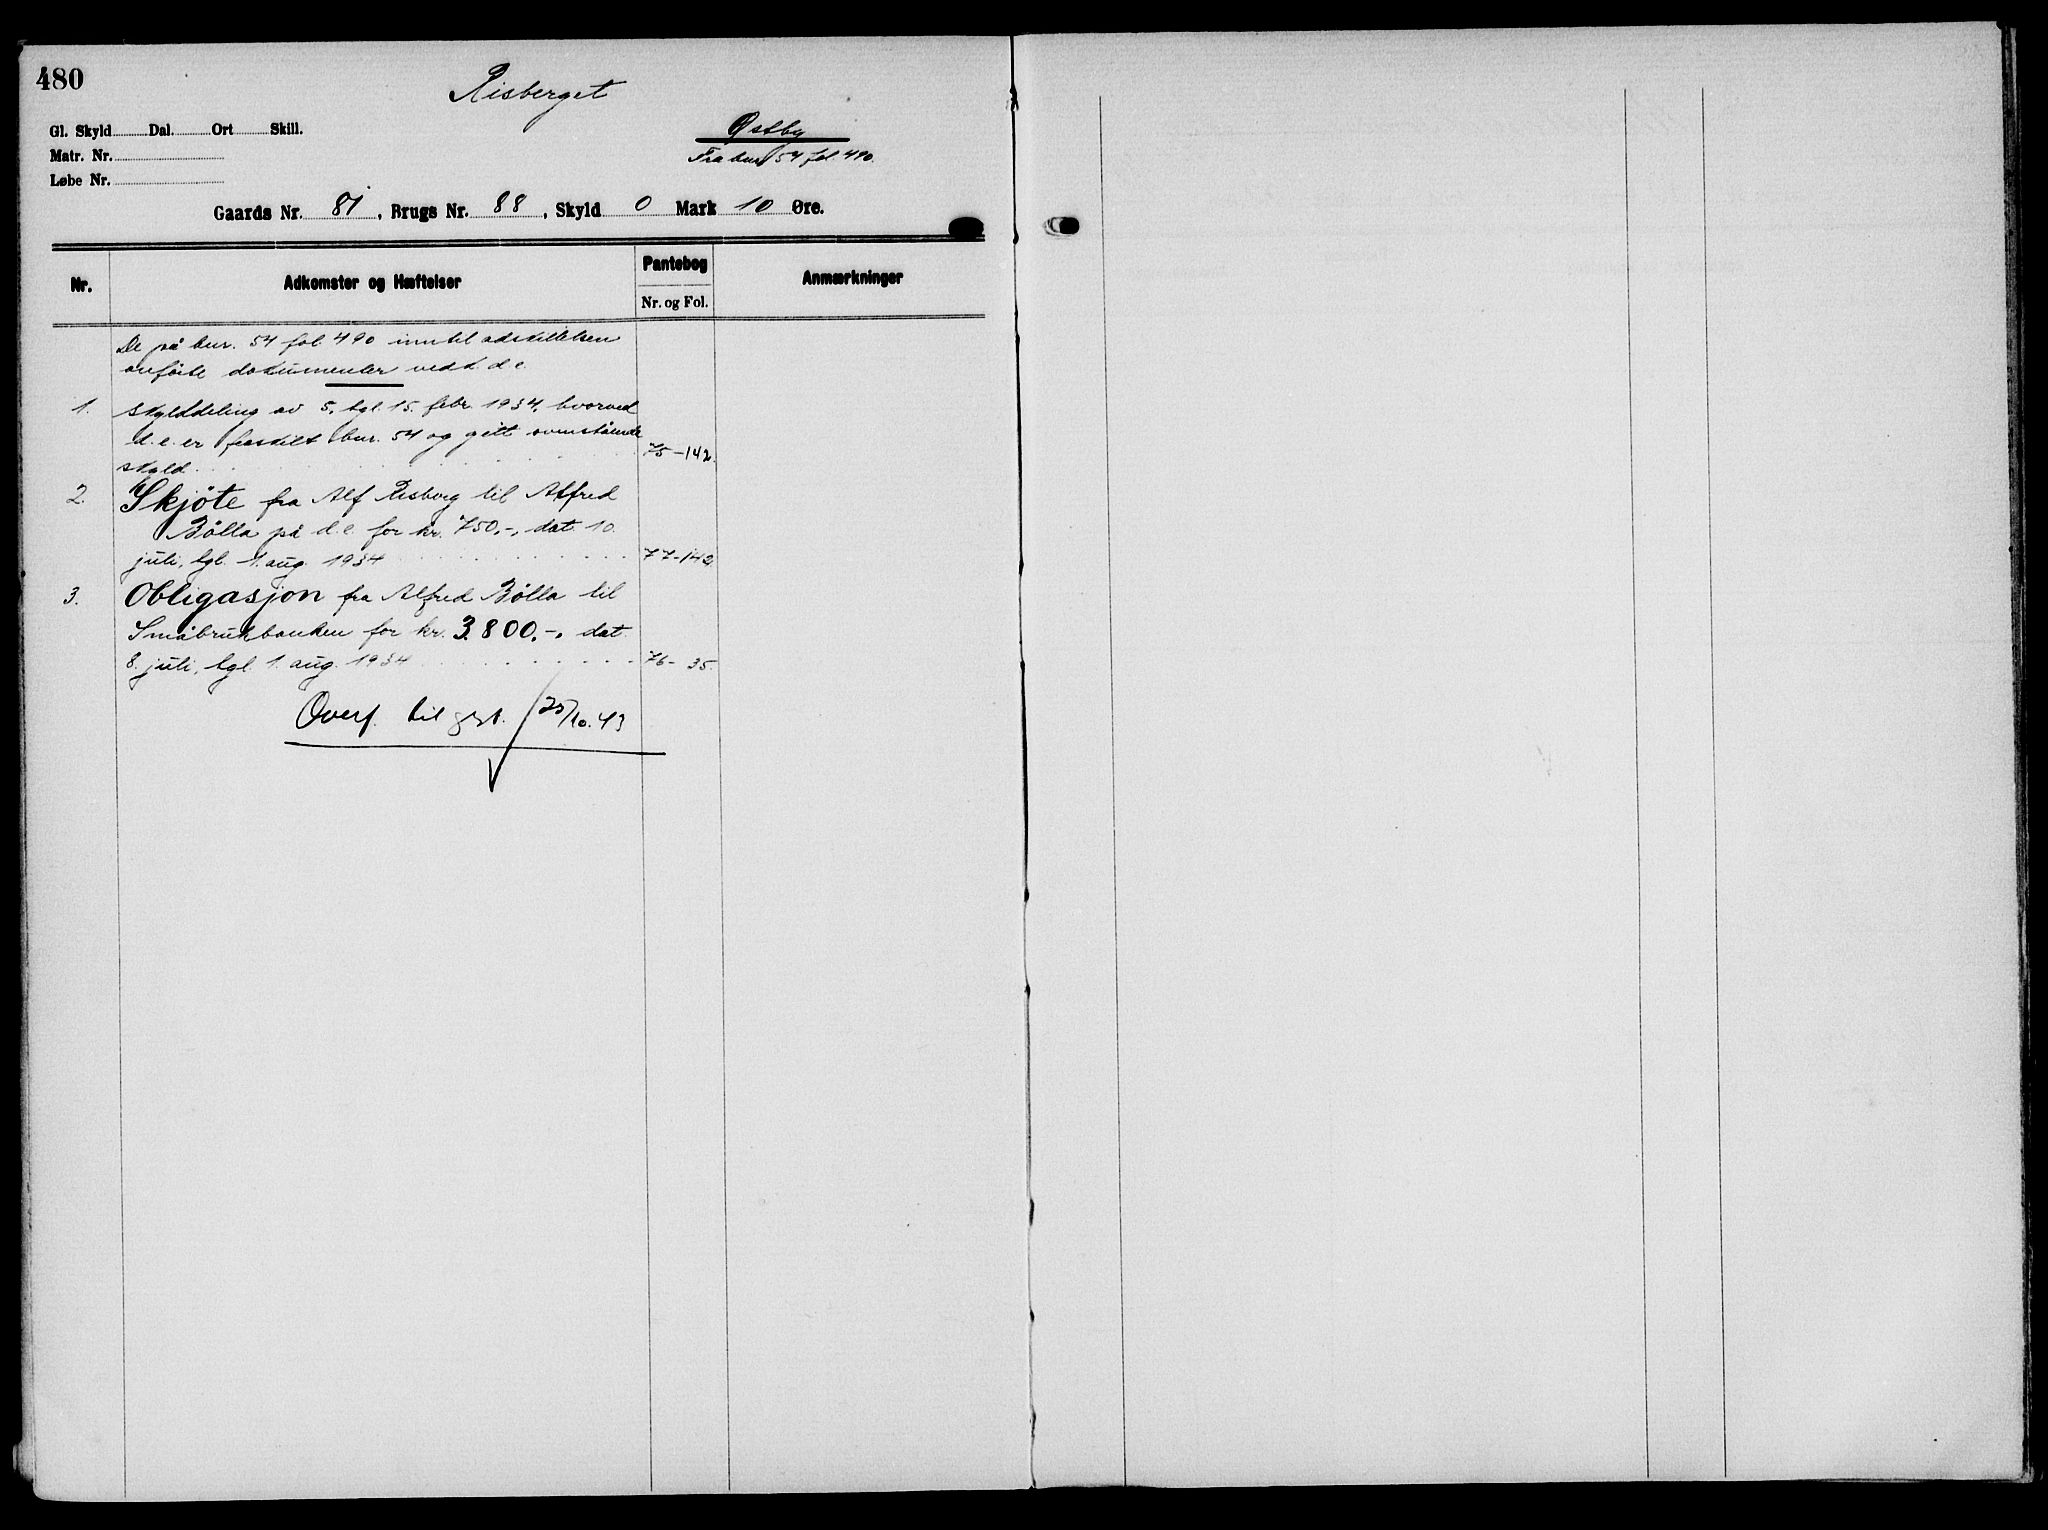 480
Risberget
Østby
Fra bnr 54 fol. 490.
Gl. Skyld Dal. Ort Skill.
Matr. Nr.
Løbe Nr.
Gaards Nr. 81, Brugs Nr. 88, Skyld 0 Mark 10 Øre.
Nr. Adkomster og Hæftelser Pantebog Nr. og Fol. Anmærkninger
De på bnr. 54 fol 490 inntil adskillelsen
anførte dokumenter vedk d.e.
1. Skylddeling av 5, tgl. 15. febr. 1934, hvorved
d.e. er fraskilt bnr. 54 og gitt ovenstående
skyld 75-142.
2. Skjøte fra Alf Risberg til Alfred
Bølla på d.e. for kr. 750.-, dat. 10.
juli, tgl. 1. aug. 1934 77-142
3. Obligasjon fra Alfred Bølla til
Småbrukbanken for kr. 3.800.-, dat.
8. juli, tgl. 1. aug. 1934 76-35.
Overf. til 25/10.43